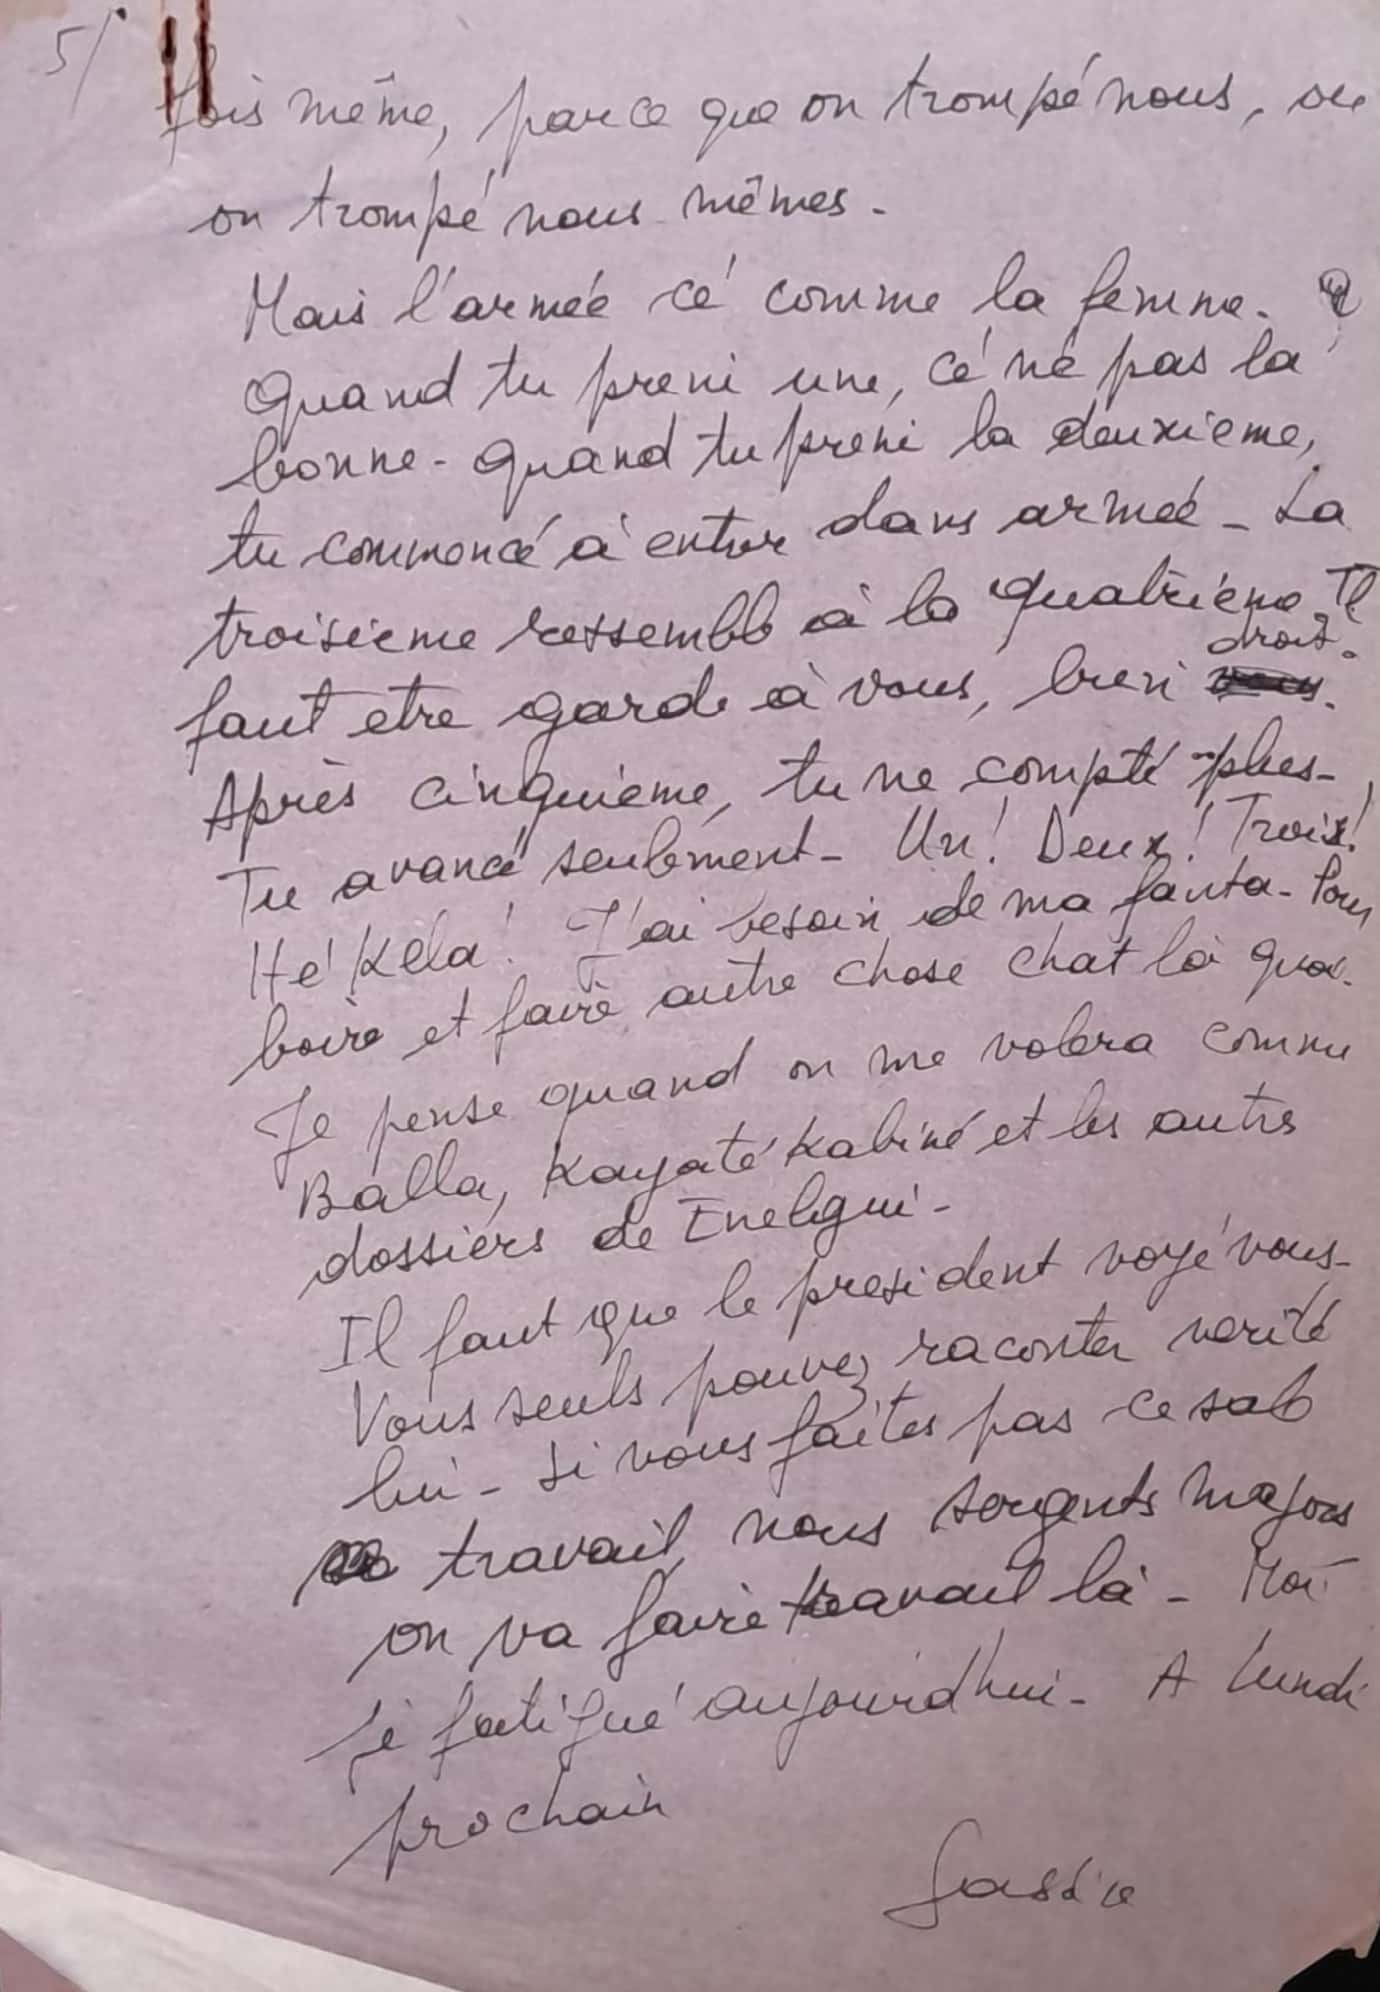 5/
fois même, parce que on trompé nous, ou
on trompé nous mêmes.
Mais l'armée cé comme la femme.
Quand tu preni une, cé né pas la
bonne. Quand tu preni la deuxieme,
tu commencé à entrer dans armée. La
troisieme ressemble à la quatrième. Il
droit.
faut etre garde à vous, bien
Après cinquième, tu ne compté plus.
Tu avancé seulement. Un! Deux! Troix!
Hé! Kéla! J'ai besoin de ma fanta. Pour
boire et faire autre chose chat là quoi.
Je pense quand on me volera comme
Balla, Kayaté Kabiné et les autres
dossiers de Enelgui.
Il faut que le president voyé vous.
Vous seuls pouvez raconter verité
lui. Si vous faites pas ce sale
travail, nous sergents majors
on va faire travail là. Moi
jé fatigué aujourd'hui. A lundi
prochain